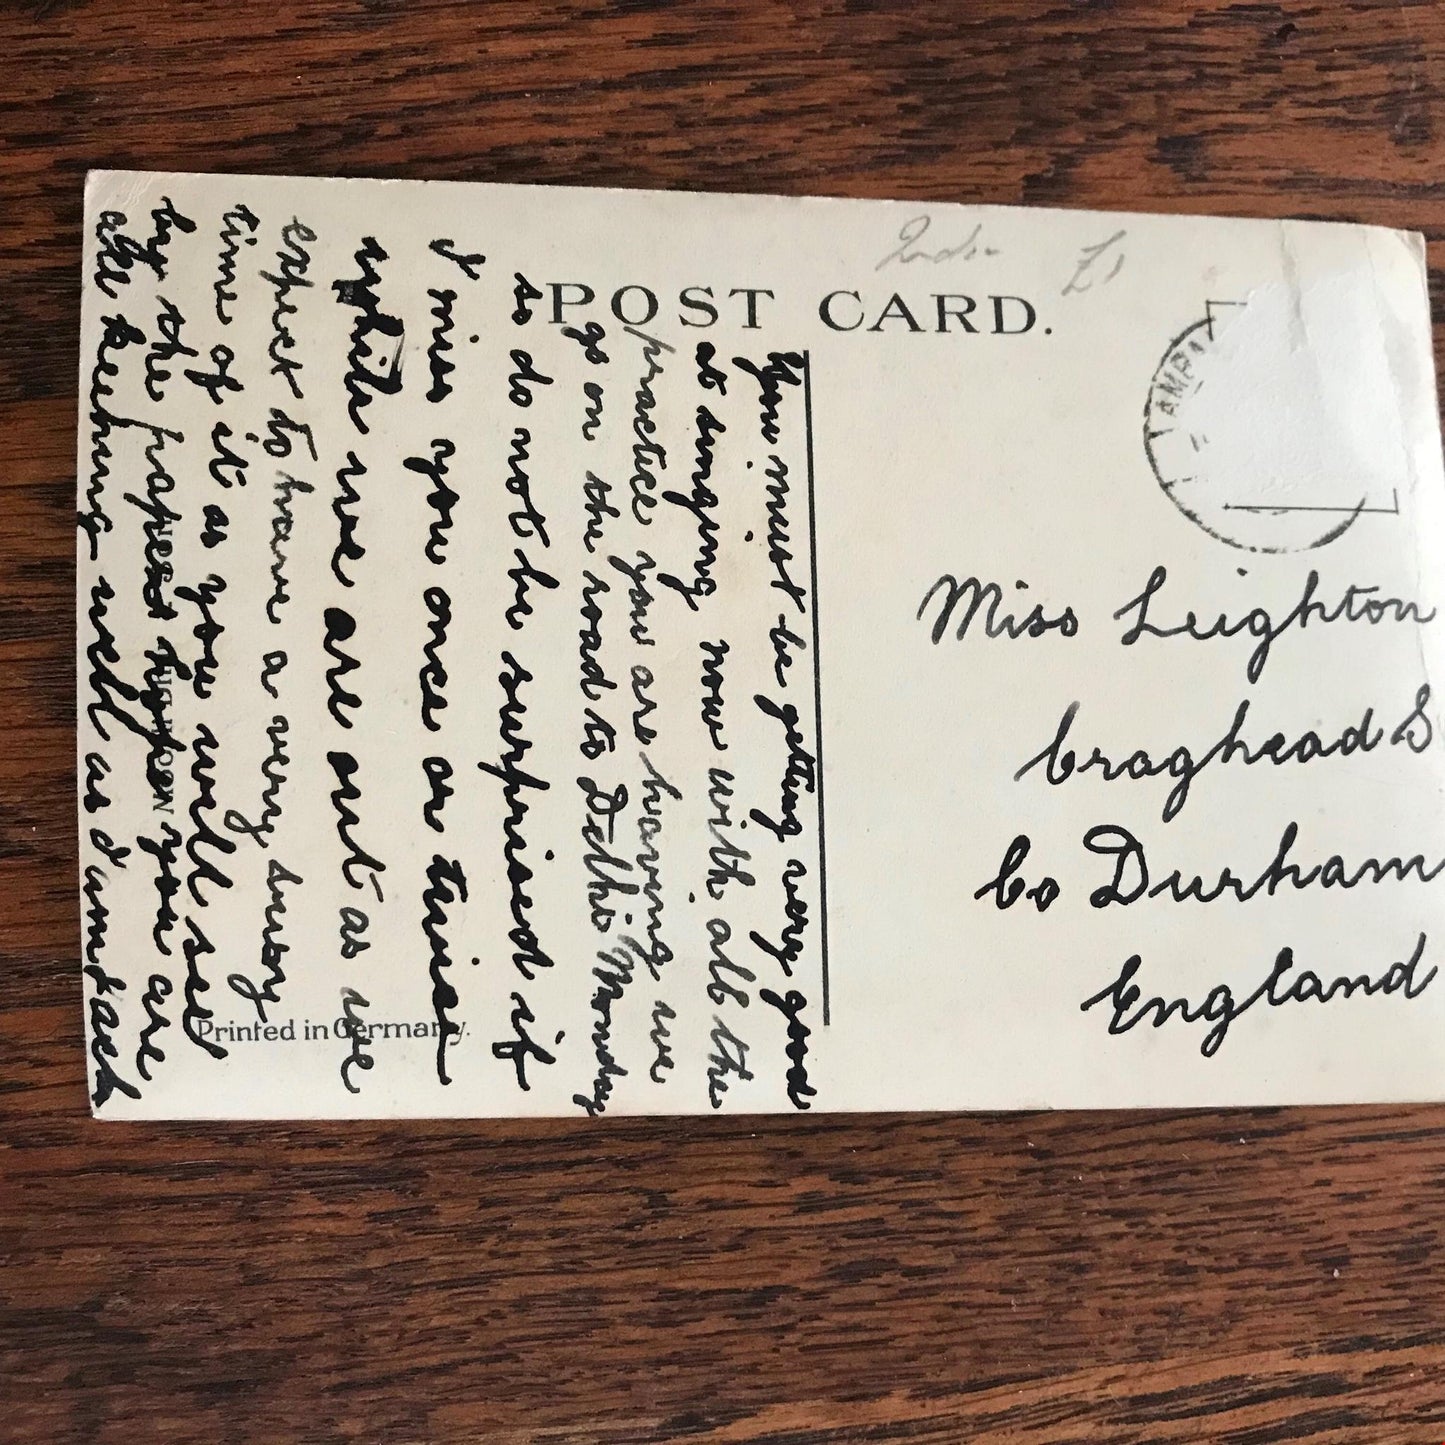 India £1
POST CARD.
You must be getting very good
at singing now with all the
practice you are having we
go on the road to Delhi Monday
so do not be surprised if
I miss you once or twice
while we are out as we
expect to have a very busy
time of it as you will see
by the papers hope you are
all keeping well as I am
Miss Leighton
Craghead S
Co Durham
England
AMBA
Printed in Germany.